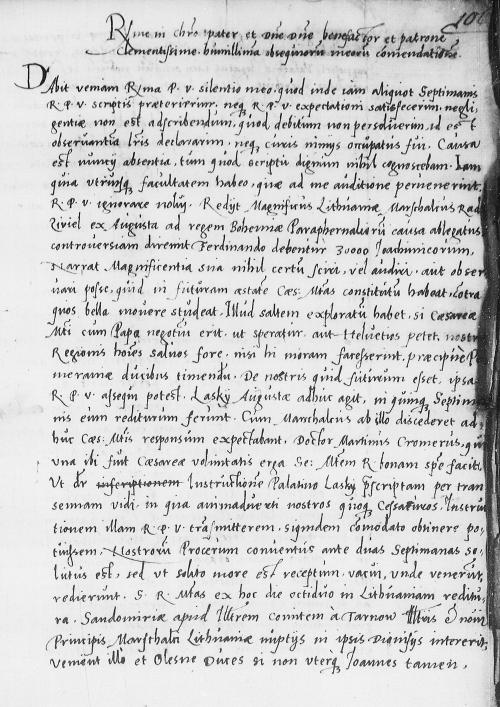 106
Rme in chro pater et dne dne benefactor et patrone
clementissime. humillima obsequioru meoru comendatione.
Dabit veniam R/ma P. v. silentio meo. quod inde iam aliquot Septimanis
R. P. v. scriptis praeterierim, neq R. P. v. expectationi satisfecerim. negli-
gentiae non est adscribendum, quod debitum non persoluerim, id est
observantia lris declararim, neq curis nimys occupatus fui. Causa
est nuncy absentia, tum quod scriptu dignum nihil cognoscebam. Iam
quia utrunsq facultatem habeo, quae ad me auditione peruenerint,
R. P. v. ignorare nolui. Redyt Magnificus Lithuaniae Marschalcus Rad
ziviel ex Augusta ad regem Bohemiae Paraphernaliorū causa ablegatus
controuersiam diremit Ferdinando debentur 30000 Ioachimicorum.
Narrat Magnificentia sua nihil certu sciri, vel audiri. aut obser
uari posse, quid in futuram aestate Caes. Mtas constitutu habeat, cotra
quos bella mouere studeat. Illud saltem exploratu habet, si Caesareae
Mti cum Papa negotiu erit, ut speratur, aut Helvetios petet, nostr
Regionis hoies saluos fore, nisi hi moram facesserint, praecipue Po
meraniae ducibus timendu. De nostris quid futurum esset, ipsa
R. P. v. assequi potest. Lasky Augustae adhuc agit, in quinq Septima
nis eum rediturum ferunt. Cum Marschalcus ab illo discederet ad-
huc Caes: Mtis responsum expectabant. Doctor Martinus Cromerus, qui
una ibi fuit Caesareae voluntatis erga Se: Mtem R. bonam spe facit.
Ut dr inscriptionem Instructione Palatino Lasky pscriptam per tran
sennam vidi, in qua animaduerti nostros quoq Instruc
tionem illam R. P. v. trasmitterem, siquidem comodato obtinere po-
tuissem. Nostroru Procerum conuentus ante duas Septimanas so-
lutus est, sed ut solito more est receptum, vacui, unde venerunt,
redierunt. S. R. Mtas ex hoc die octiduo in Lithuaniam reditu-
ra. Sandomiriae apud Illtrem comitem à Tarnow Illtris Dni
Principis Marschalci Lithuaniae nuptys in ipsis Dignisys intererit,
venient illo et Olesne Duces si non uterq Ioannes tamen,